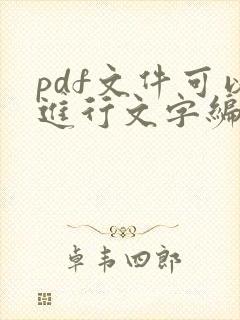 pdf文件可以
进行文字编
卓韦四郎